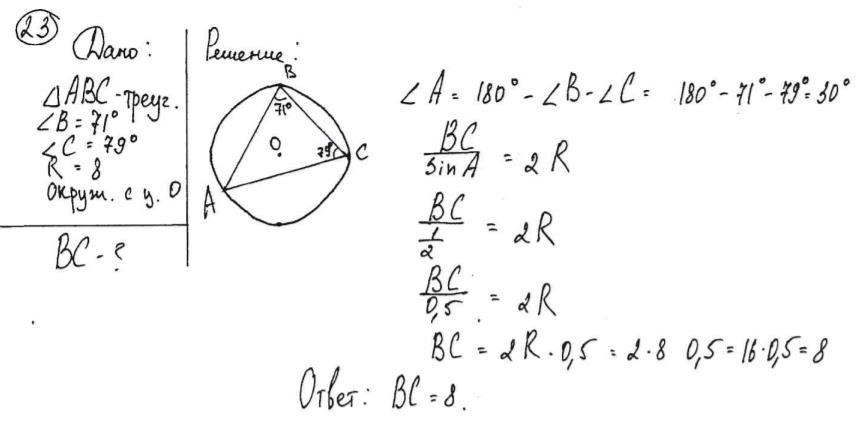 23
Дано:
△ABC - треуг.
∠B = 71°
∠C = 79°
R = 8
Окруж. с ц. О
BC - ?
Решение:
B
71°
O
79°
C
A
∠A = 180° - ∠B - ∠C = 180° - 71° - 79° = 30°
BC / Sin A = 2R
BC / 1/2 = 2R
BC / 0,5 = 2R
BC = 2R · 0,5 = 2 · 8 0,5 = 16 · 0,5 = 8
Ответ: BC = 8.